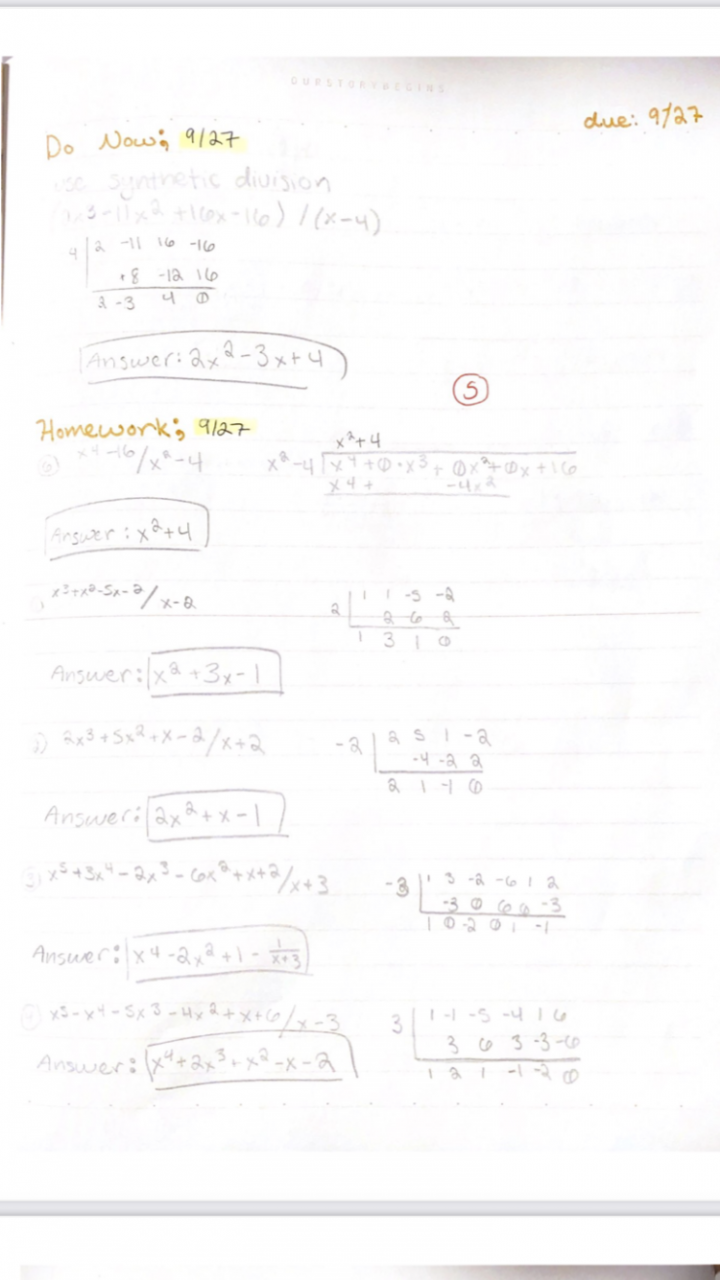 OURSTORYBEGINS
due: 9/27
Do Now; 9/27
use synthetic division
x3-11x2 +16x-16) / (x-4)
4 | 2 -11 16 -16
+8 -12 16
2 -3 4 0
Answer: 2x2-3x+4
5
Homework; 9/27
x2+4
6 x4-16/x2-4 x2-4 x4+0·x3+ 0x2+0x+16
x4+ -4x2
Answer: x2+4
x3+x2-5x-2/x-2 2 | 1 1 -5 -2
2 6 2
1 3 1 0
Answer: x2+3x-1
2) 2x3+5x2+x-2/x+2 -2 | 2 5 1 -2
-4 -2 2
2 1 -1 0
Answer: 2x2+x-1
3) x5+3x4-2x3-6x2+x+2/x+3 -3 | 1 3 -2 -6 1 2
-3 0 6 0 -3
1 0 -2 0 1 -1
Answer: x4-2x2+1- 1/x+3
x5-x4-5x3-4x2+x+6/x-3 3 | 1 -1 -5 -4 1 6
3 6 3 -3 -6
Answer: x4+2x3+x2-x-2
1 2 1 -1 -2 0